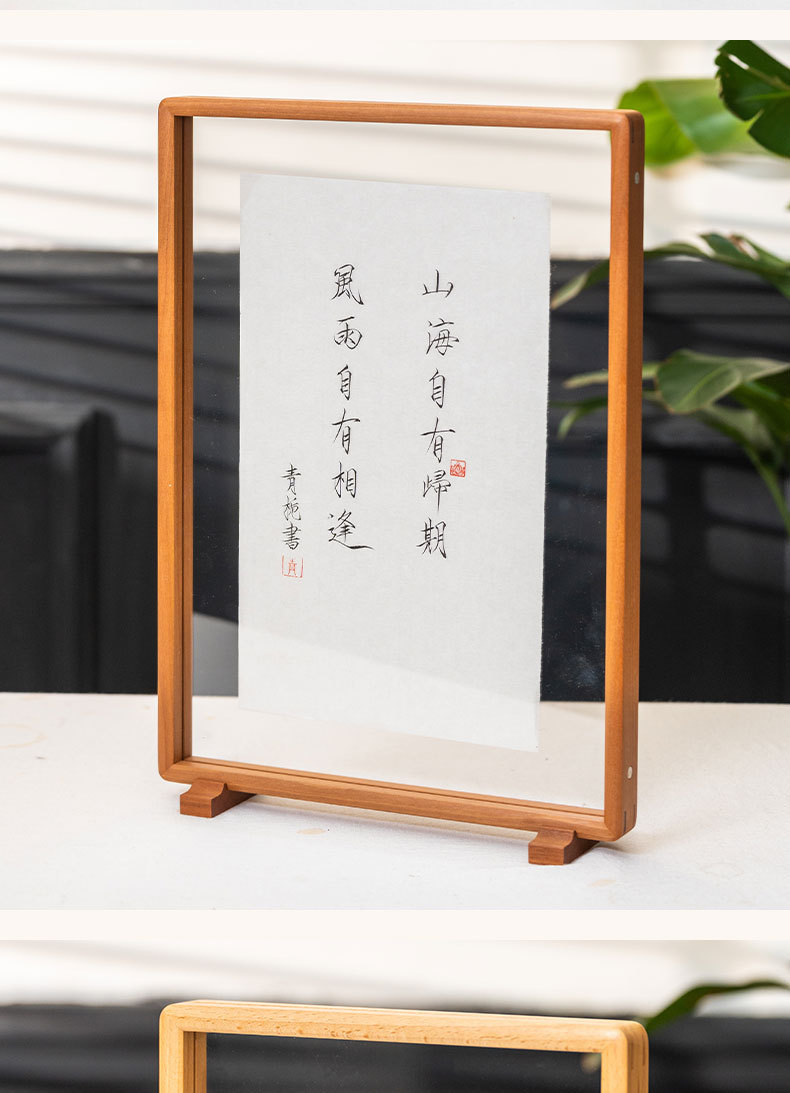 山海自有歸期
風雨自有相逢
青栀書